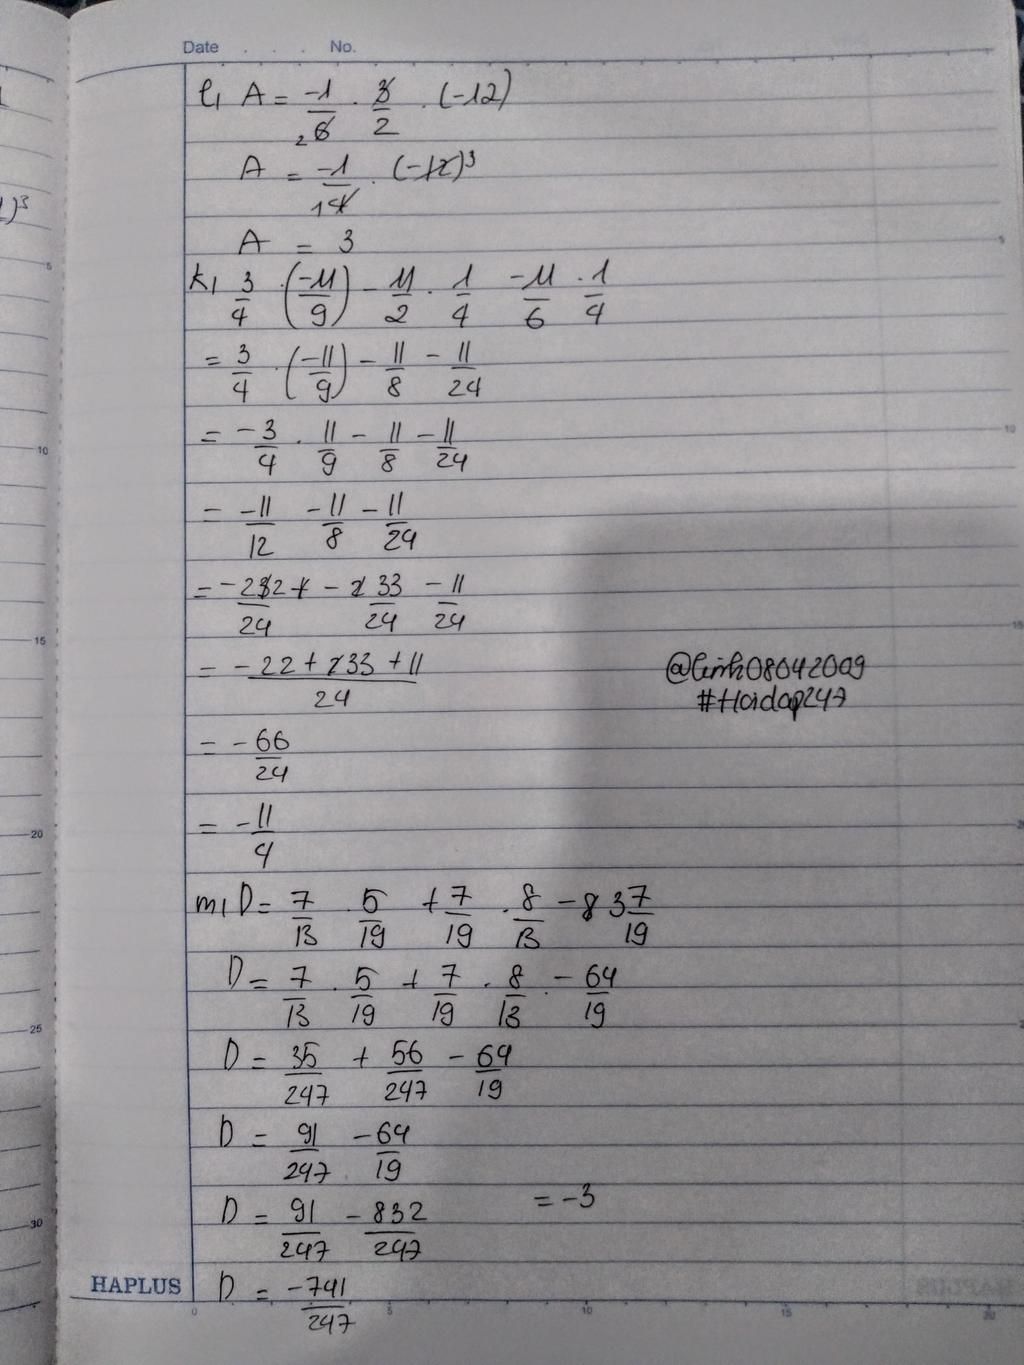 Date . . . No.
l, A = -1/6 2 . 3/2 . (-12)
A = -1/4 1 . (-12)3
A = 3
k, 3/4 . (-11/9) - 11/2 . 1/4 - 11/6 . 1/4
= 3/4 . (-11/9) - 11/8 - 11/24
= -3/4 . 11/9 - 11/8 - 11/24
= -11/12 - 11/8 - 11/24
= -22/24 - 33/24 - 11/24
= - 22 + 33 + 11/24
= - 66/24
@linh08042009
#Hoidap247
= - 11/4
m, D = 7/13 . 5/19 + 7/19 . 8/13 - 3 7/19
D = 7/13 . 5/19 + 7/19 . 8/13 - 64/19
D = 35/247 + 56/247 - 64/19
D = 91/247 - 64/19
D = 91/247 - 832/247 = -3
D = -741/247
HAPLUS